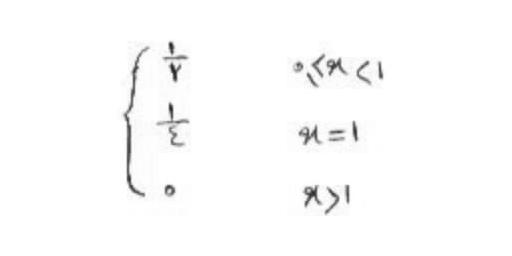 ۱/۲ ۰ ≤ x < ۱
۱/٤ x = ۱
۰ x > ۱